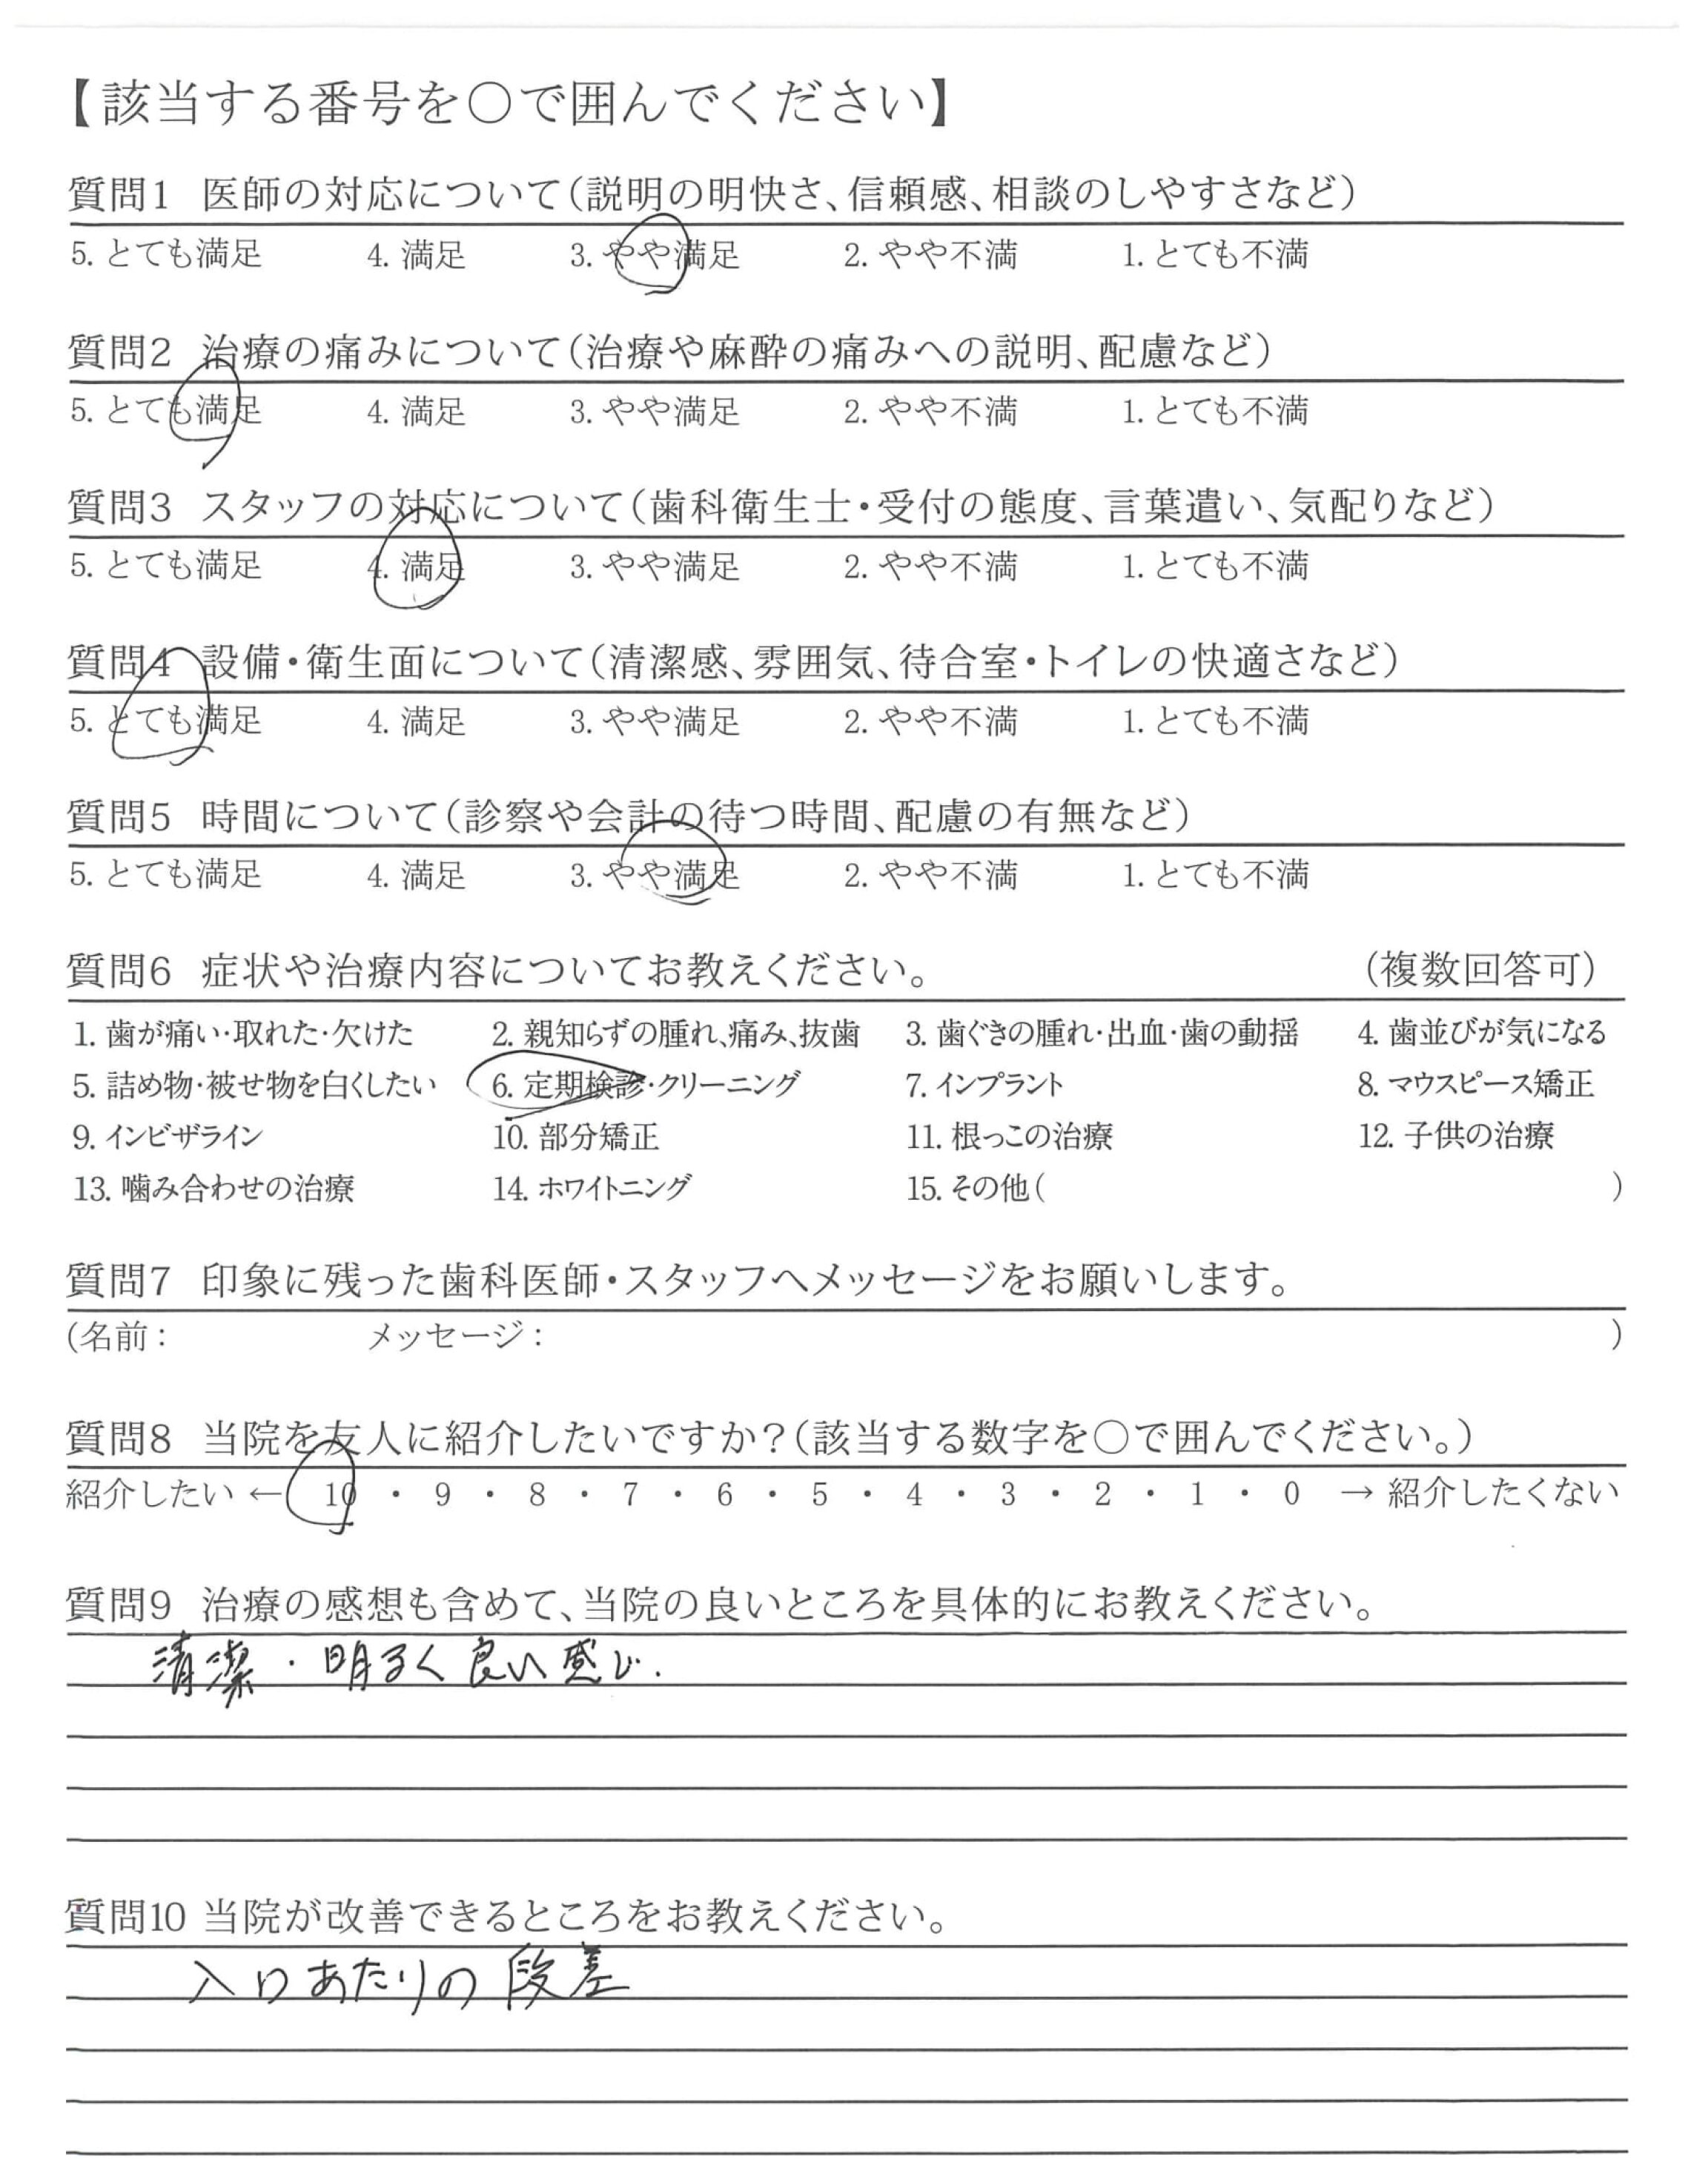 【該当する番号を○で囲んでください】
質問1 医師の対応について(説明の明快さ、信頼感、相談のしやすさなど)
5. とても満足 4. 満足 3. やや満足 2. やや不満 1. とても不満
質問2 治療の痛みについて(治療や麻酔の痛みへの説明、配慮など)
5. とても満足 4. 満足 3. やや満足 2. やや不満 1. とても不満
質問3 スタッフの対応について(歯科衛生士・受付の態度、言葉遣い、気配りなど)
5. とても満足 4. 満足 3. やや満足 2. やや不満 1. とても不満
質問4 設備・衛生面について(清潔感、雰囲気、待合室・トイレの快適さなど)
5. とても満足 4. 満足 3. やや満足 2. やや不満 1. とても不満
質問5 時間について(診察や会計の待つ時間、配慮の有無など)
5. とても満足 4. 満足 3. やや満足 2. やや不満 1. とても不満
質問6 症状や治療内容についてお教えください。 (複数回答可)
1. 歯が痛い・取れた・欠けた 2. 親知らずの腫れ、痛み、抜歯 3. 歯ぐきの腫れ・出血・歯の動揺 4. 歯並びが気になる
5. 詰め物・被せ物を白くしたい 6. 定期検診・クリーニング 7. インプラント 8. マウスピース矯正
9. インビザライン 10. 部分矯正 11. 根っこの治療 12. 子供の治療
13. 噛み合わせの治療 14. ホワイトニング 15. その他( )
質問7 印象に残った歯科医師・スタッフへメッセージをお願いします。
(名前: メッセージ: )
質問8 当院を友人に紹介したいですか?(該当する数字を○で囲んでください。)
紹介したい ← 10 ・ 9 ・ 8 ・ 7 ・ 6 ・ 5 ・ 4 ・ 3 ・ 2 ・ 1 ・ 0 → 紹介したくない
質問9 治療の感想も含めて、当院の良いところを具体的にお教えください。
清潔・明るく良い感じ.
質問10 当院が改善できるところをお教えください。
入口あたりの段差